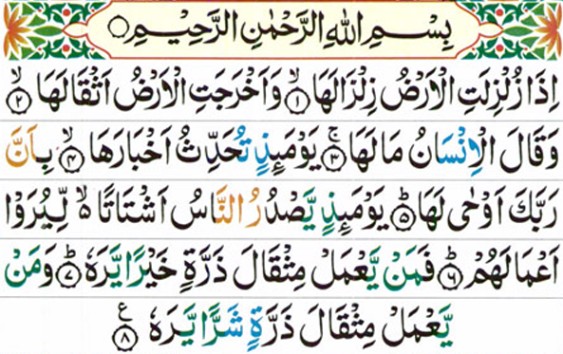 بِسْمِ اللهِ الرَّحْمٰنِ الرَّحِيْمِ
اِذَا زُلْزِلَتِ الْاَرْضُ زِلْزَالَهَا ۙ﴿۱﴾ وَاَخْرَجَتِ الْاَرْضُ اَثْقَالَهَا ۙ﴿۲﴾
وَقَالَ الْاِنْسَانُ مَا لَهَا ۚ﴿۳﴾ يَوْمَىِٕذٍ تُحَدِّثُ اَخْبَارَهَا ۙ﴿۴﴾ بِاَنَّ
رَبَّكَ اَوْحٰى لَهَا ؕ﴿۵﴾ يَوْمَىِٕذٍ يَّصْدُرُ النَّاسُ اَشْتَاتًا ۙ۬ لِّيُرَوْا
اَعْمَالَهُمْ ؕ﴿۶﴾ فَمَنْ يَّعْمَلْ مِثْقَالَ ذَرَّةٍ خَيْرًا يَّرَهٗ ؕ﴿۷﴾ وَمَنْ
يَّعْمَلْ مِثْقَالَ ذَرَّةٍ شَرًّا يَّرَهٗ ﴿۸﴾ ع